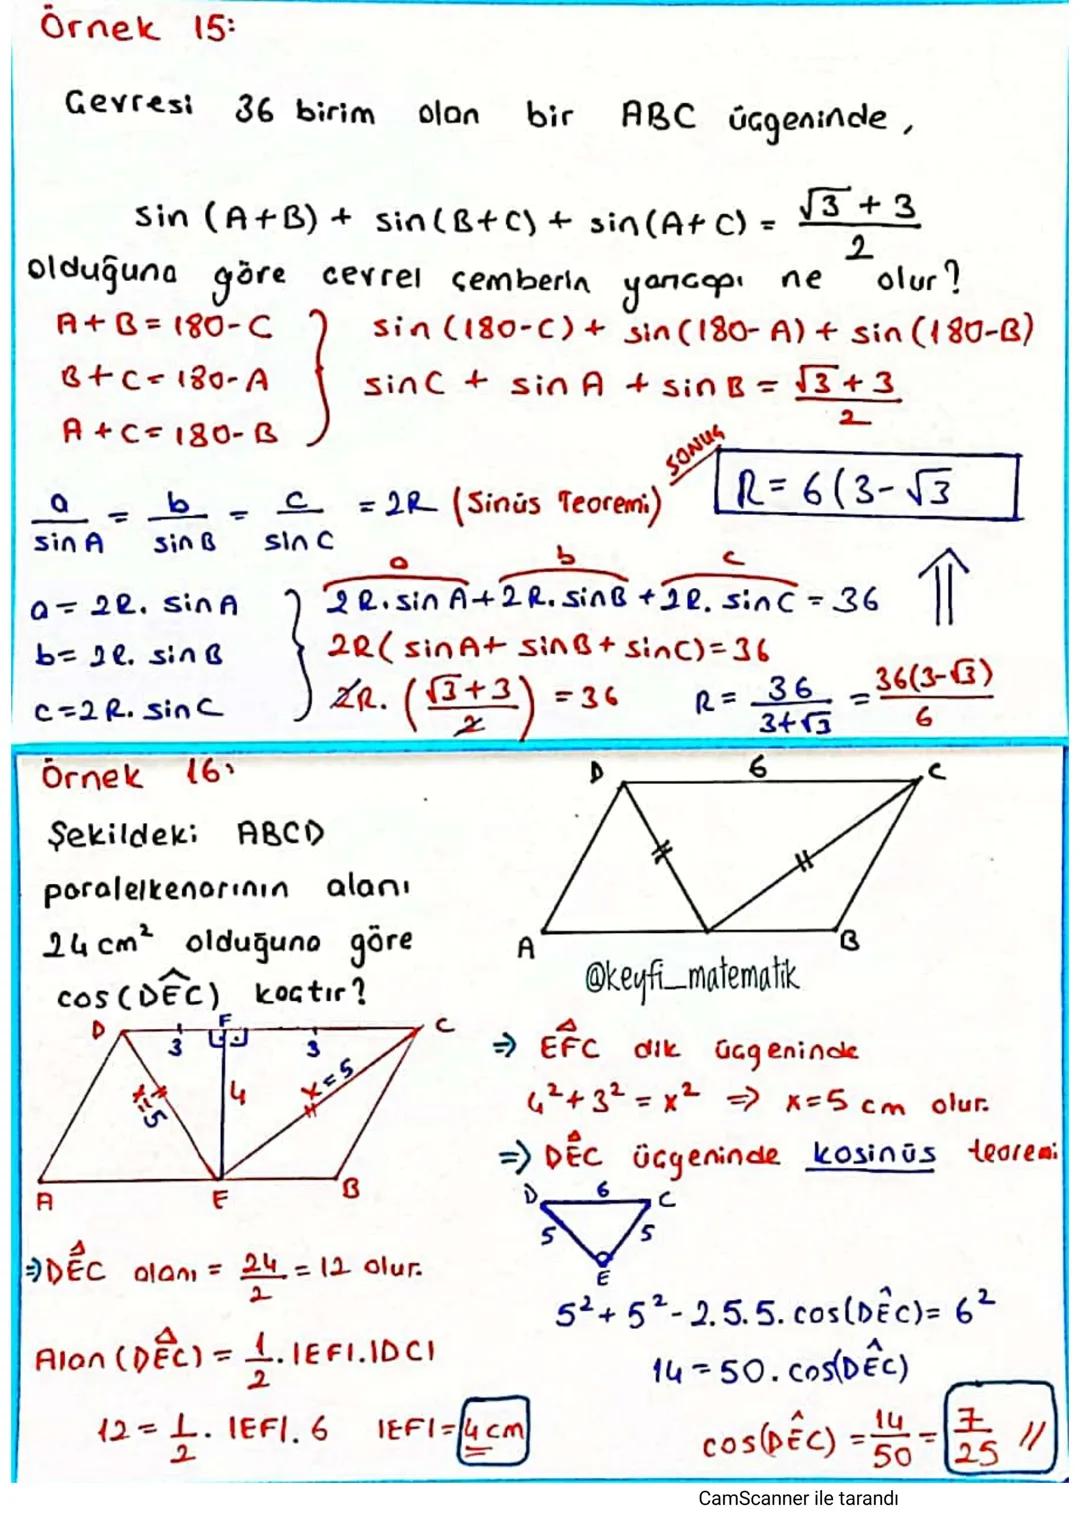 Örnek 15:
Çevresi 36 birim olan bir ABC üçgeninde,
sin (A+B) + sin(B+C) + sin(A+C) = √3 + 3 / 2
olduğuna göre çevrel çemberin yarıçapı ne olur?
A+B = 180-C
B+C = 180-A
A+C = 180-B
sin (180-C) + sin(180-A) + sin(180-B)
sinC + sin A + sin B = √3+3 / 2
a / sin A = b / sin B = c / sin C = 2R (Sinüs Teoremi)
SONUÇ
R = 6(3-√3
a = 2R. sin A
b = 2R. sin B
c = 2R. sin C
a b c
2R.sin A + 2R.sinB + 2R. sinC = 36
2R( sinA + sinB + sinC) = 36
2R. (√3+3 / 2) = 36
R = 36 / 3+√3 = 36(3-√3) / 6
Örnek 16:
Şekildeki ABCD
paralelkenarının alanı
24 cm² olduğuna göre
cos (DÊC) kaçtır?
D 6 C
A B
@keyfi_matematik
D F C
3 3
x=5 4 x=5
A E B
⇒ EFC dik üçgeninde
4² + 3² = x² ⇒ x = 5 cm olur.
⇒ DEC üçgeninde kosinüs teoremi
D 6 C
5 5
E
⇒ DEC alanı = 24 / 2 = 12 olur.
Alan (DEC) = 1/2 . |EF|.|DC|
12 = 1/2 . |EF|. 6 |EF| = 4 cm
5² + 5² - 2.5.5. cos(DÊC) = 6²
14 = 50. cos(DÊC)
cos(DÊC) = 14/50 = 7/25 //
CamScanner ile tarandı